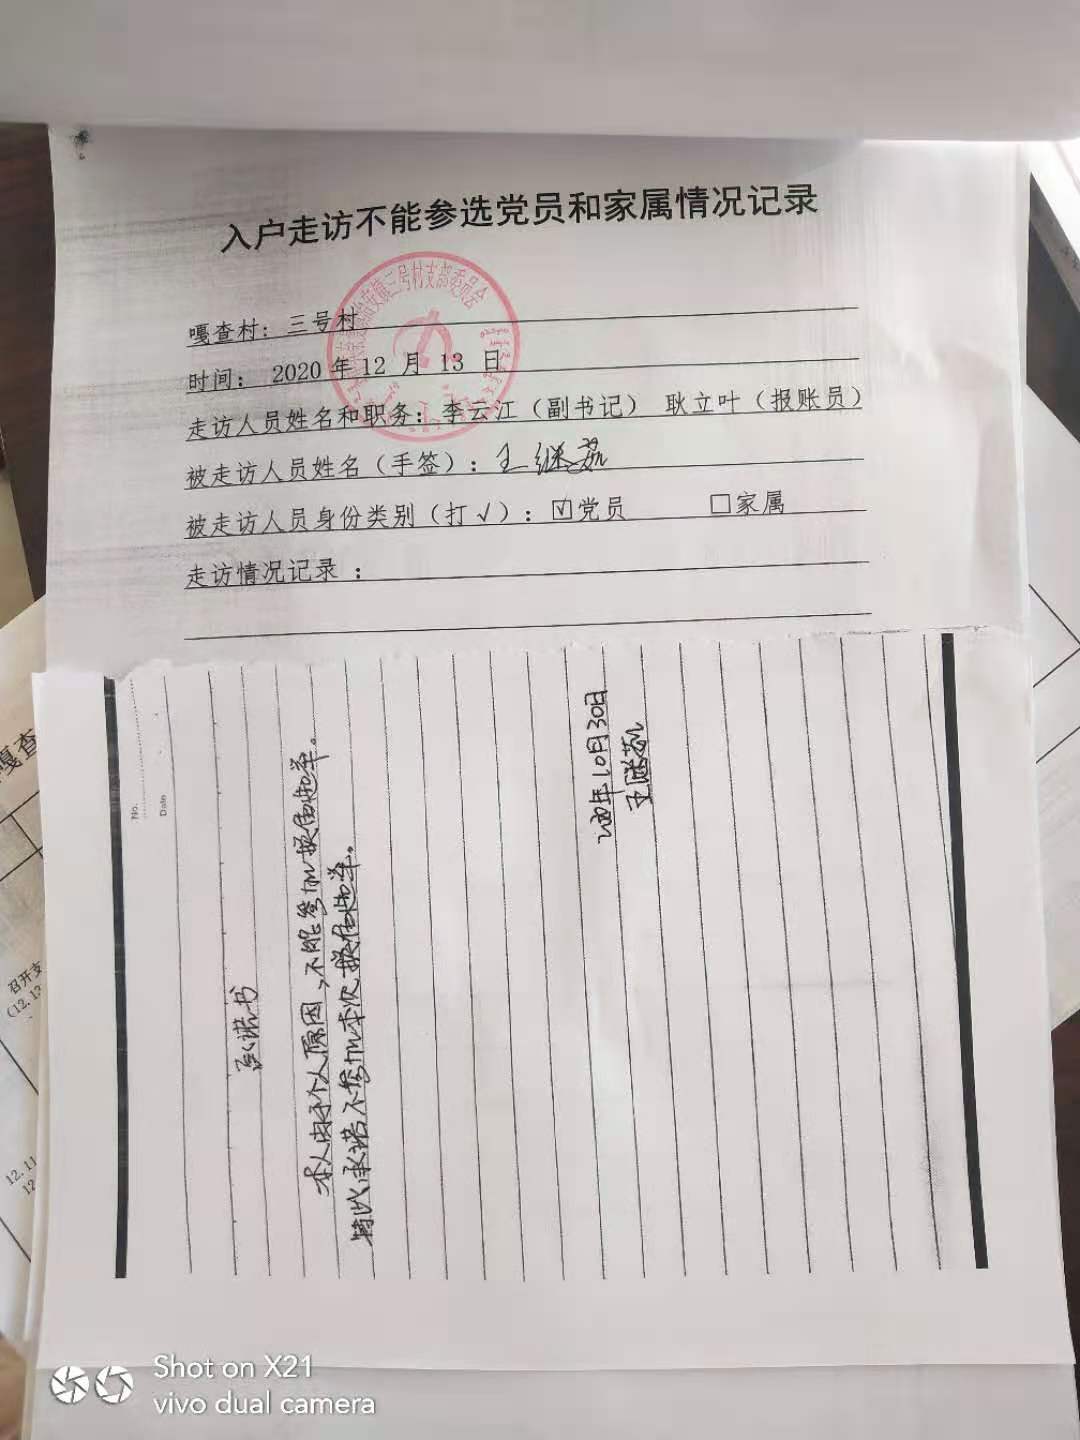 入户走访不能参选党员和家属情况记录
嘎查村：三号村
时间： 2020 年 12 月 13 日
走访人员姓名和职务：李云江（副书记） 耿立叶（报账员）
被走访人员姓名（手签）：王继荔
被走访人员身份类别（打√）：☑党员 □家属
走访情况记录 ：
No.
Date
承诺书
本人由于个人原因，不能参加换届选举。
特此承诺不参加本次换届选举。
年10月30日
嘎查
召开支
(12.13
12.11
12
三号村支部委员会
Shot on X21
vivo dual camera